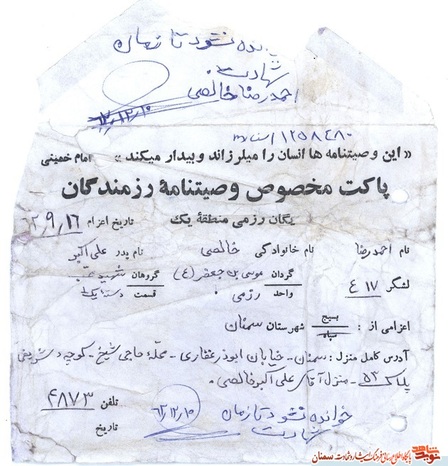 خوانده نشود تا زمان
شهادت
احمدرضا خالصی
۶۲/۱۲/۱۰
۱۲۵۸۴۸۰
«این وصیتنامه ها انسان را میلرزاند و بیدار میکند» امام خمینی
پاکت مخصوص وصیتنامهٔ رزمندگان
یگان رزمی منطقهٔ یک تاریخ اعزام ۶۲٫۹٫۱۶
نام احمدرضا نام خانوادگی خالصی نام پدر علی اکبر
لشگر ۱۷ گردان موسی بن جعفر (۴) گروهان شهید
واحد رزمی قسمت دسته یک
اعزامی از : بسیج سپاه شهرستان سمنان
آدرس کامل منزل : سمنان - خیابان ابوذر غفاری - محلهٔ حاجی شیخ - کوچه
پلاک ۵۲ - منزل آقای علی اکبر خالصی .
تلفن ۴۸۷۳
خوانده نشود تا زمان
شهادت
۶۲/۱۲/۱۰
تاریخ
نوید شاهد
پایگاه اطلاع رسانی فرهنگ ایثار و شهادت سمنان